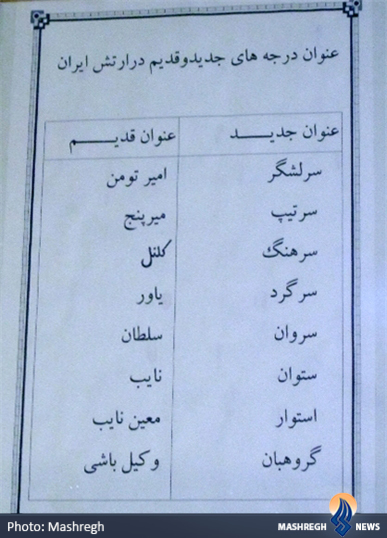 عنوان درجه های جدیدوقدیم درارتش ایران
عنوان جدیـــــد عنوان قدیـــــم
سرلشگر امیر تومن
سرتیپ میرپنج
سرهنگ کلنل
سرگرد یاور
سروان سلطان
ستوان نایب
استوار معین نایب
گروهبان وکیل باشی
Photo: Mashregh
MASHREGH NEWS